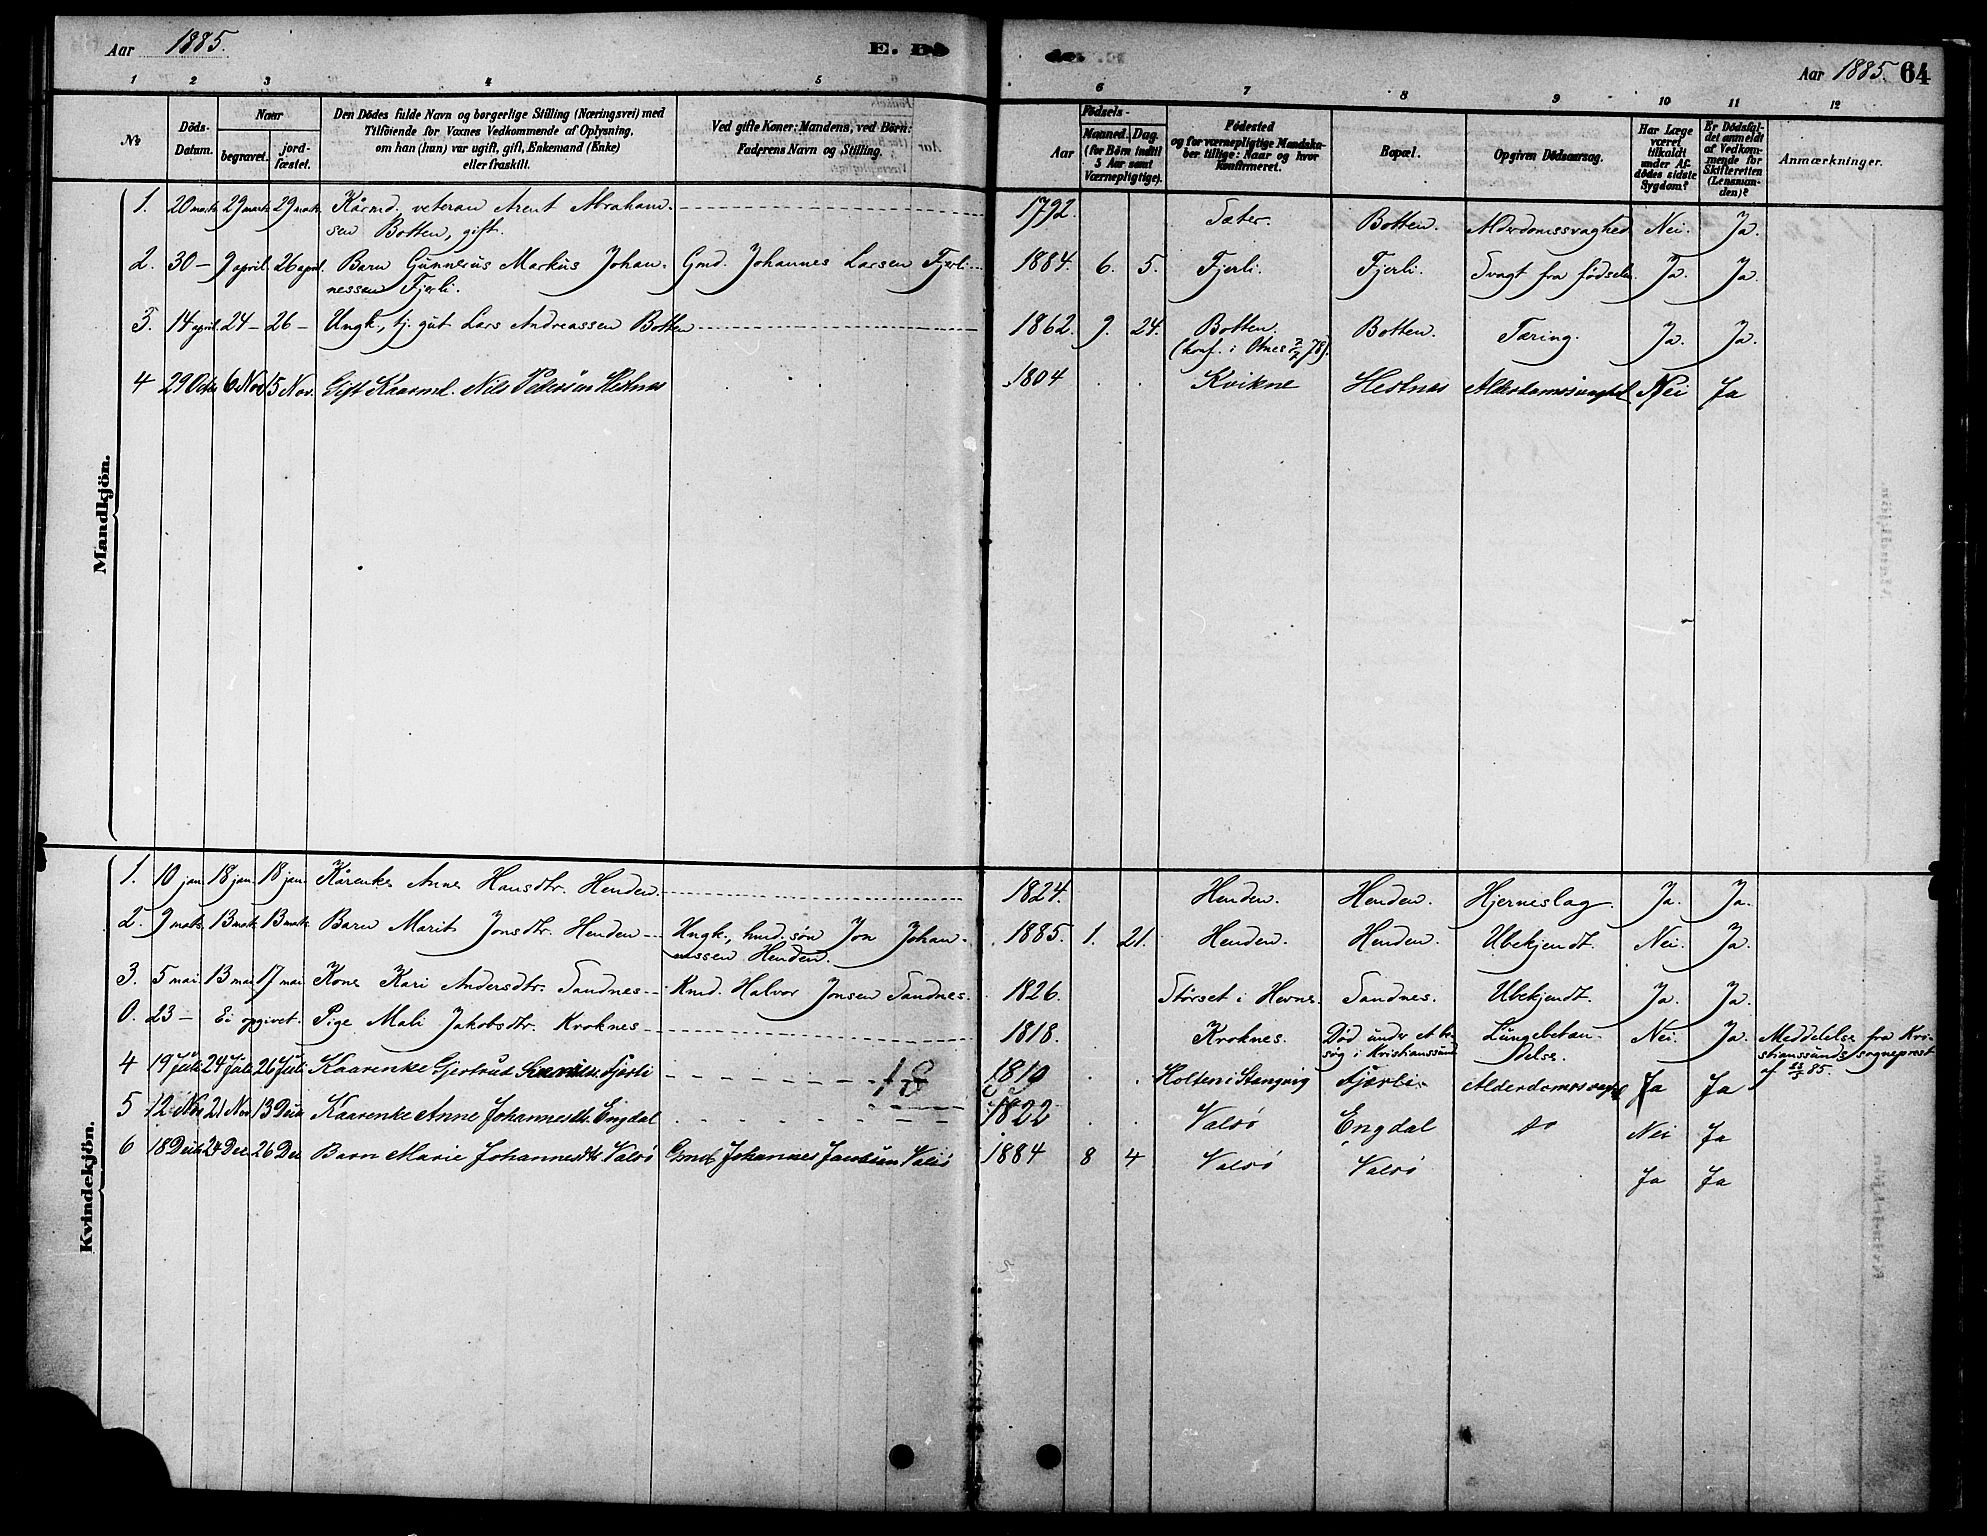 Aar 1885.
E. Dö
Aar 1885. 64
1 2 3 4 5 6 7 8 9 10 11 12
№
Döds-
Datum.
Naar
begravet.
jord-
fæstet.
Den Dödes fulde Navn og borgerlige Stilling (Næringsvei) med
Tilföiende for Voxnes Vedkommende af Oplysning,
om han (hun) var ugift, gift, Enkemand (Enke)
eller fraskilt.
Ved gifte Koner: Mandens, ved Börn:
Faderens Navn og Stilling.
Födsels-
Aar
Maaned. Dag.
(for Børn indtil
5 Aar samt
Værnepligtige).
Födested
og for værnepligtige Mandska-
ber tillige: Naar og hvor
konfirmeret.
Bopæl.
Opgiven Dödsaarsag.
Har Læge
været
tilkaldt
under Af-
dödes sidste
Sygdom?
Er Dödsfal-
det anmeldt
af Vedkom-
mende for
Skifteretten
(Lensman-
den)?
Anmærkninger.
Mandkjön.
1. 20 marts 29 marts 29 marts Kårmd, veteran Arent Abraham- 1792. Sæter. Botten. Alderdomssvaghed. Nei. Ja.
sen Botten, gift.
2. 30 – 9 april 26 april. Barn Gunnerus Markus Johan- Gmd. Johannes Larsen Fjerli. 1884. 6. 5. Fjerli. Fjerli. Svagt fra fødselen. Ja. Ja.
nessen Fjerli.
3. 14 april. 24 – 26 – Ungk., tj. gut Lars Andreassen Botten 1862. 9. 24. Botten. Botten. Tæring. Ja. Ja.
(konf. i Otnes 7/7 78).
4 29 Octr 6 Nov 15 Nov. Gift Kaarmd. Nils Pedersen Hestnes 1804 Kvikne Hestnes Alderdomssvaghed Nei Ja
Kvindekjön.
1. 10 jan. 18 jan. 18 jan. Kårenke Anne Hansdtr. Henden. 1824. Henden. Henden. Hjerneslag. Ja. Ja.
2. 9 marts. 13 marts 13 marts. Barn Marit Jonsdtr. Henden Ungk., hmd. søn Jon Johan- 1885. 1. 21. Henden. Henden. Ubekjendt. Nei. Ja.
nessen Henden.
3. 5 mai. 13 mai 17 mai Kone Kari Andersdtr. Sandnes Kmd. Halvor Jonsen Sandnes. 1826. Størset i Hevne. Sandnes. Ubekjendt. Ja. Ja.
0. 23 – Ei opgivet. Pige Mali Jakobsdtr. Kroknes 1818. Kroknes. Død under et be- Lungebetæn- Nei. Ja. Meddelelse fra Kri-
søg i Kristianssund delse. stianssunds sogneprest
af 85.
4 19 Juli 24 Juli 26 Juli Kaarenke Gjertrud Fjerli 1819 Holten i Stangvig Fjærli Alderdomssvagh Ja Ja
5 12 Nov 21 Nov 13 Decbr Kaarenke Anne Johannesdtr. Engdal 1822 Valsø Engdal do Nei Ja
6 18 Decbr 24 Dec 26 Dec Barn Marie Johannesdtr Valsø Gmd Johannes Jansen Valsø 1884 8 4 Valsø Valsø Ja Ja